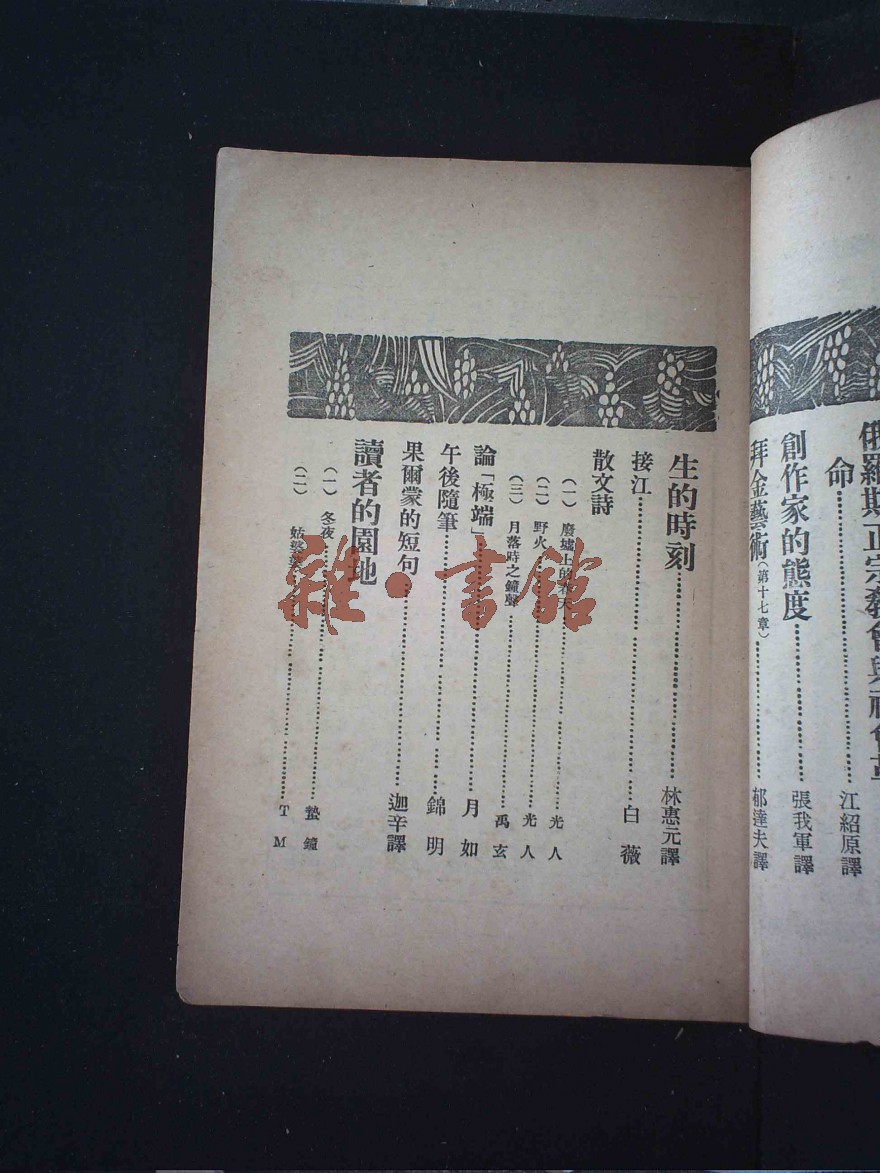 俄羅斯正宗教會與社會革
命……江紹原譯
創作家的態度……張我軍譯
拜金藝術(第十七章)……郁達夫譯
生的時刻……林惠元譯
接江……白薇
散文詩
(一) 廢墟上的春天……光人
(二) 野火……光人
(三) 月落時之鐘聲……禹玄
論「極端」……月如
午後隨筆……錦明
果爾蒙的短句……迦辛譯
讀者的園地
(一) 冬夜……蟄鐘
(二) 姑……TM
雜·書館